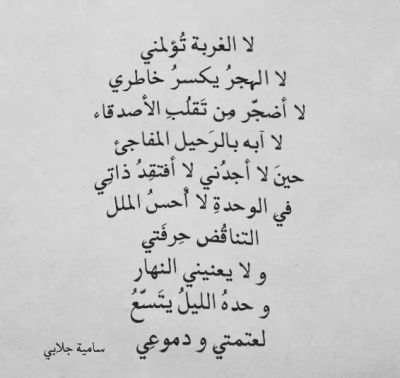 لا الغربة تُؤلمني
لا الهجرُ يكسرُ خاطري
لا أضجّر مِن تَقلُبِ الأصدقاء
لا آبه بالرَحيل المفاجئ
حينَ لا أجدُني لا أفتقِدُ ذاتِي
في الوحدةِ لا أُحسُ الملل
التناقُض حِرفَتي
و لا يعنيني النهار
و حدهُ الليلُ يتَسّعُ
لعتمتي و دموعِي
سامية جلابي